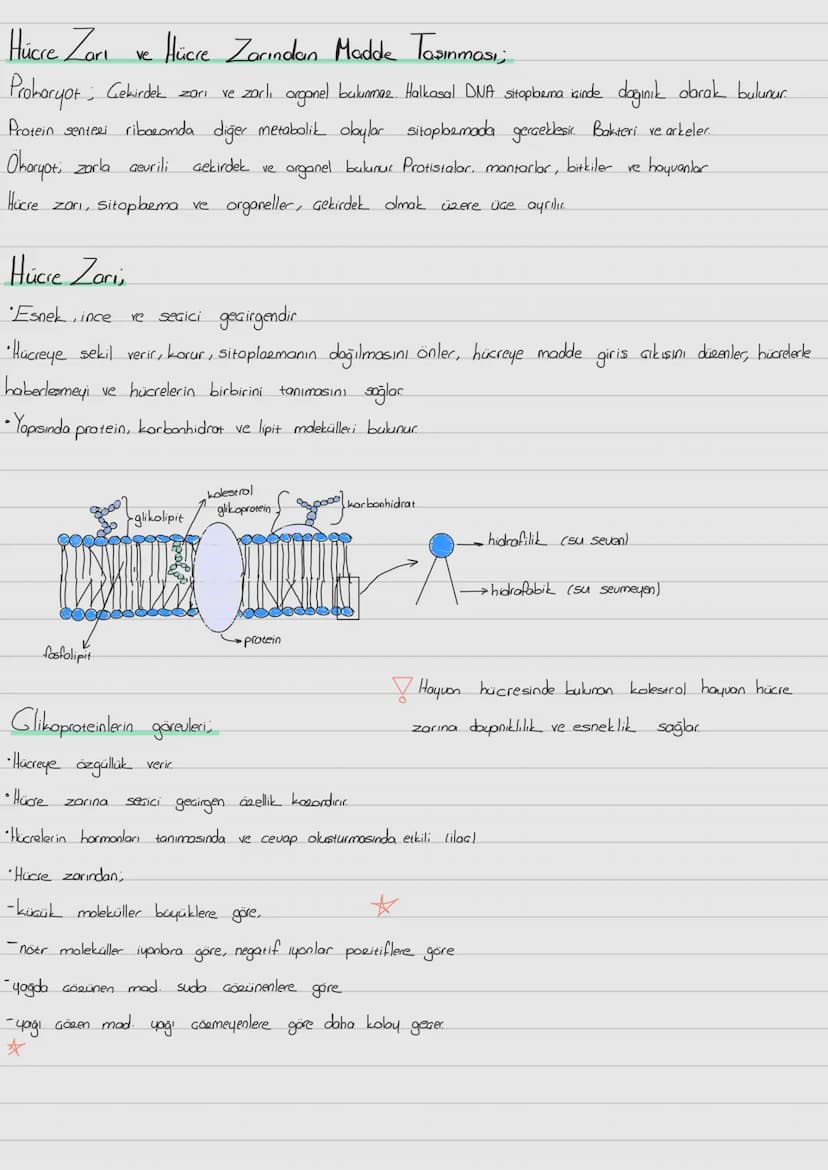 Hücre Zarı ve Hücre Zarından Madde Taşınması;
Prokaryot; Çekirdek zarı ve zarlı organel bulunmaz. Halkasal DNA sitoplazma içinde dağınık olarak bulunur.
Protein sentezi ribozomda diğer metabolik olaylar sitoplazmada gerçekleşir. Bakteri ve arkeler.
Ökaryot; zarla çevrili çekirdek ve organel bulunur. Protistalar, mantarlar, bitkiler ve hayvanlar
Hücre zarı, sitoplazma ve organeller, çekirdek olmak üzere üçe ayrılır.
Hücre Zarı;
•Esnek, ince ve seçici geçirgendir
•Hücreye şekil verir, korur, sitoplazmanın dağılmasını önler, hücreye madde giriş çıkışını düzenler, hücrelerle
haberleşmeyi ve hücrelerin birbirini tanımasını sağlar
•Yapısında protein, karbonhidrat ve lipit molekülleri bulunur.
glikolipit
kolestrol
glikoprotein
karbonhidrat
hidrofilik (su seven)
hidrofobik (su sevmeyen)
protein
fosfolipit
Hayvan hücresinde bulunan kolestrol hayvan hücre
zarına dayanıklılık ve esneklik sağlar.
Glikoproteinlerin görevleri;
•Hücreye özgüllük verir.
•Hücre zarına seçici geçirgen özellik kazandırır.
•Hücrelerin hormonları tanımasında ve cevap oluşturmasında etkili (ilaç)
•Hücre zarından;
-küçük moleküller büyüklere göre,
-nötr moleküller iyonlara göre, negatif iyonlar pozitiflere göre
-yağda çözünen mad. suda çözünenlere göre
-yağı çözen mad. yağı çözmeyenlere göre daha kolay geçer.